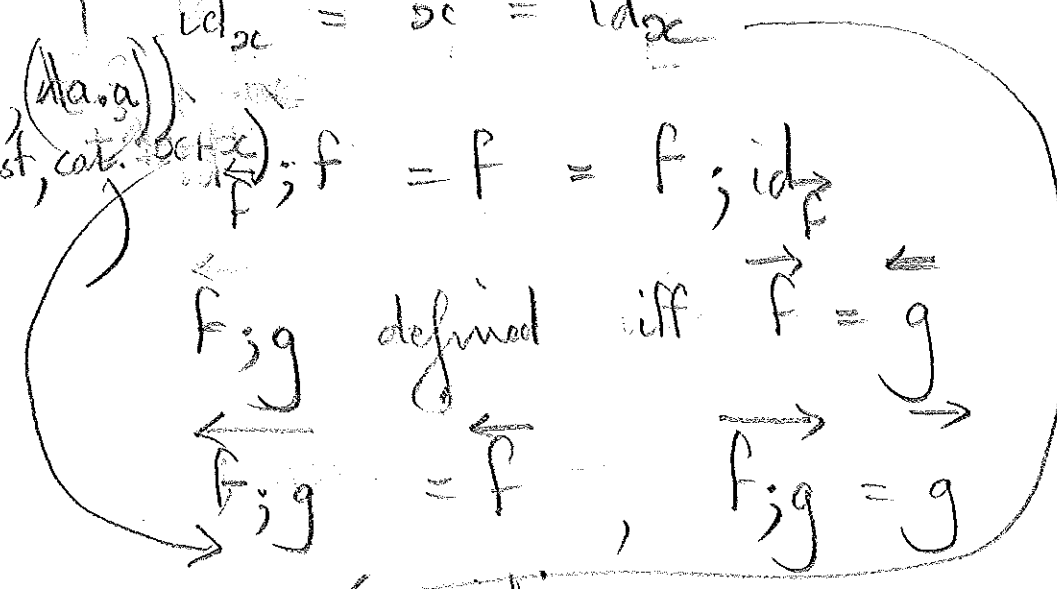 id_x = x = id_x
cat.
; f = f = f ; id_{\overrightarrow{f}}
f ; g defined iff \overrightarrow{f} = \overleftarrow{g}
\overleftarrow{f ; g} = \overleftarrow{f} , \overrightarrow{f ; g} = \overrightarrow{g}